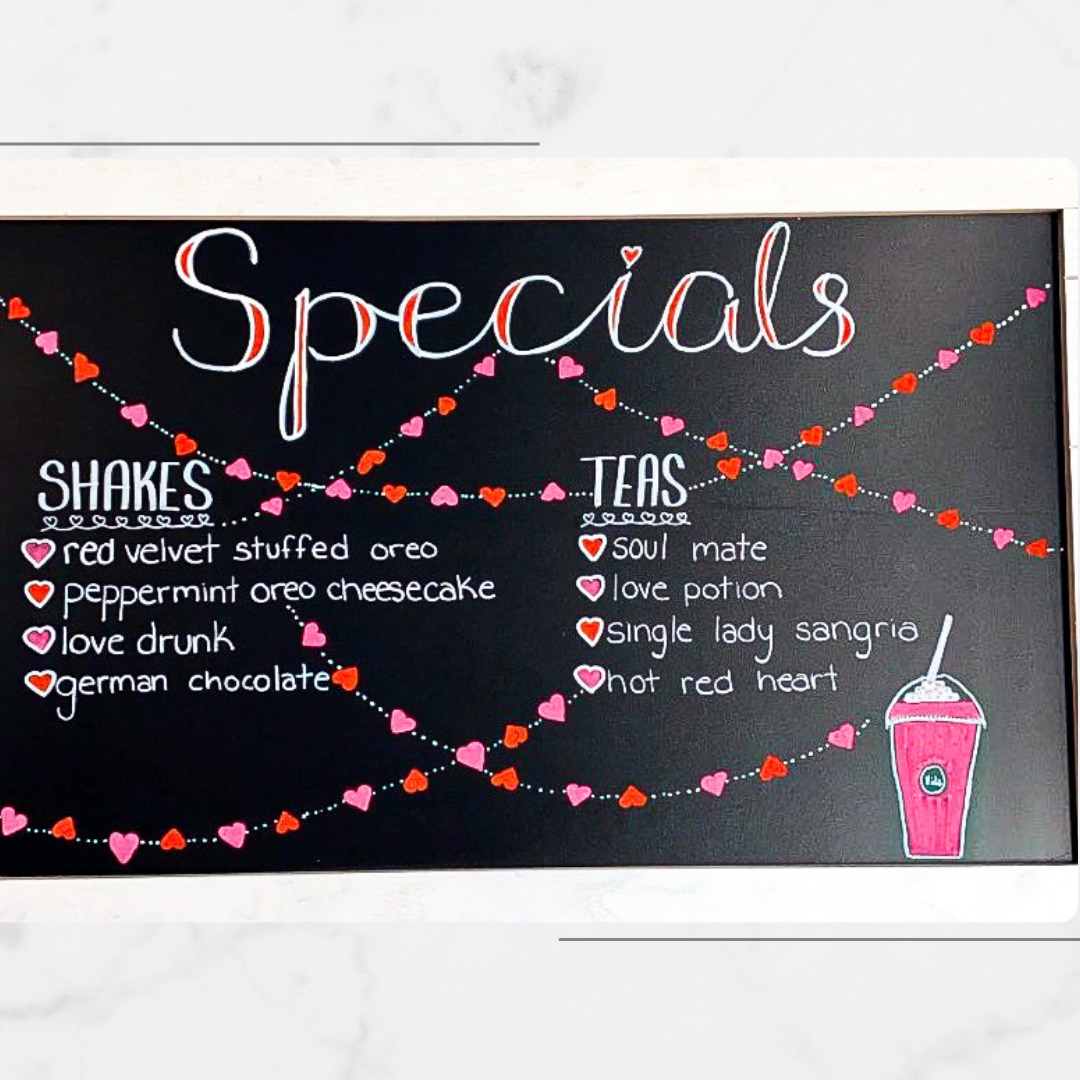 Specials
SHAKES
red velvet stuffed oreo
peppermint oreo cheesecake
love drunk
german chocolate
TEAS
soul mate
love potion
single lady sangria
hot red heart